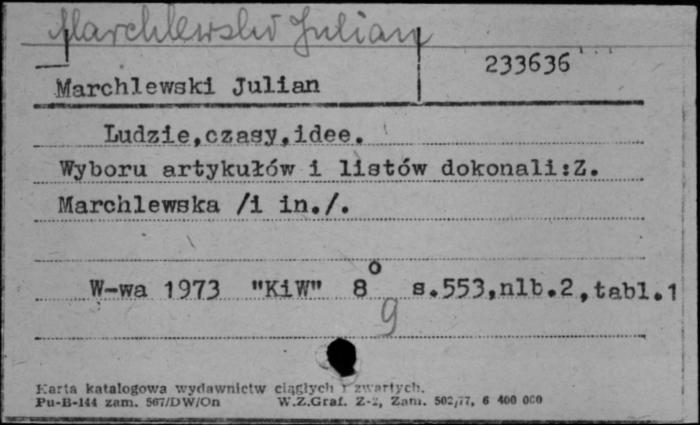 Marchlewski Julian
233636
Marchlewski Julian
Ludzie,czasy,idee.
Wyboru artykułów i listów dokonali:Z.
Marchlewska /i in./.
W-wa 1973 "KiW" 8° s.553,nlb.2,tabl.1
g
Karta katalogowa wydawnictw ciągłych i zwartych.
Pu-B-144 zam. 567/DW/On W.Z.Graf. Z-2, Zam. 502/77, 6 400 000